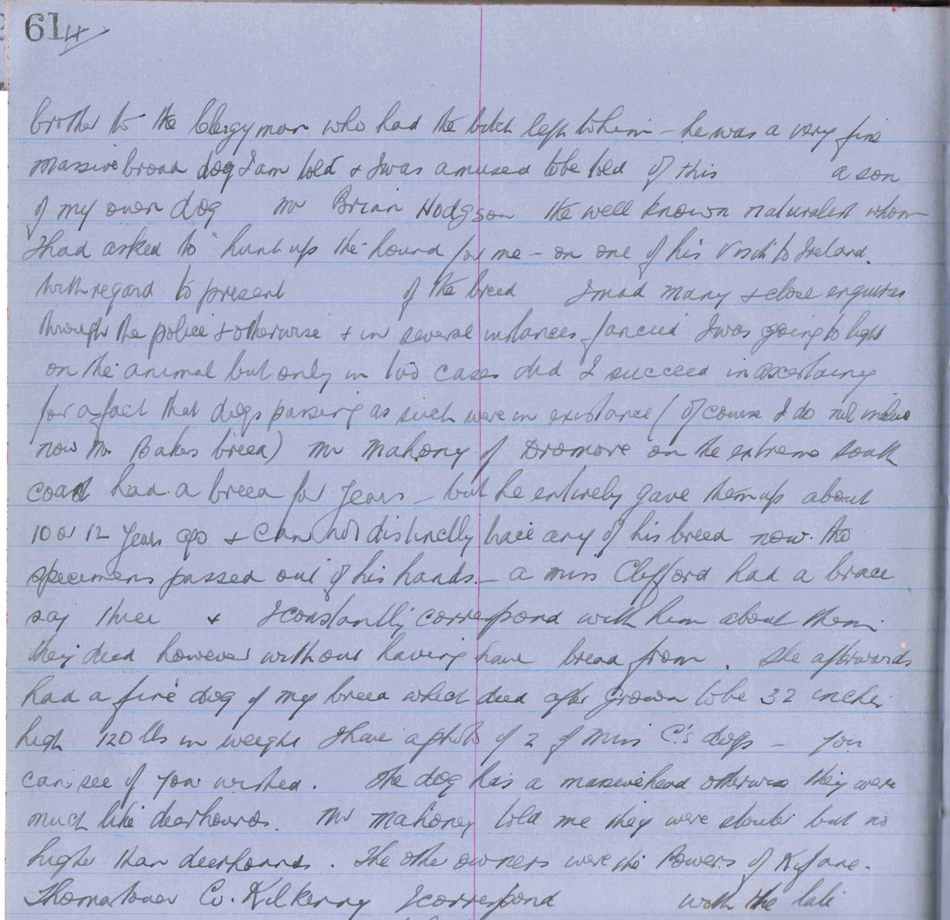 614
brother to the Clergyman who had the bitch left to him - he was a very fine
massive broad dog I am told & I was amused to be told of this a son
of my own dog Mr Brian Hodgson the well known naturalist whom
I had asked to hunt up the hound for me - on one of his visits to Ireland.
With regard to present of the breed I mad many & close enquiries
through the police & otherwise & in several instances fancied I was going to light
on the animal but only in two cases did I succeed in ascertaing
for a fact that dogs passing as such were in existance (of course I do not
now Mr Bakers breed) Mr Mahony of Dromore on the extreme South
coast had a breed for years - but he entirely gave them up about
10 or 12 years ago & can not distinctly trace any of his breed now. tho
specimens passed out of his hands. - a Miss Clifford had a brace
say three & I constantly correspond with him about them
they died however without having been bread from. She afterwards
had a fine dog of my breed which died after grown to be 32 inches
high 120 lbs in weight I have a photo of 2 of Miss C's dogs - you
can see if you wished. The dog has a massive head otherwise they were
much like deerhounds. Mr Mahoney told me they were stouter but no
higher than deerhounds. The other owners were the Powers of Kilfane.
Thomastown Co. Kilkenny I correspond with the late